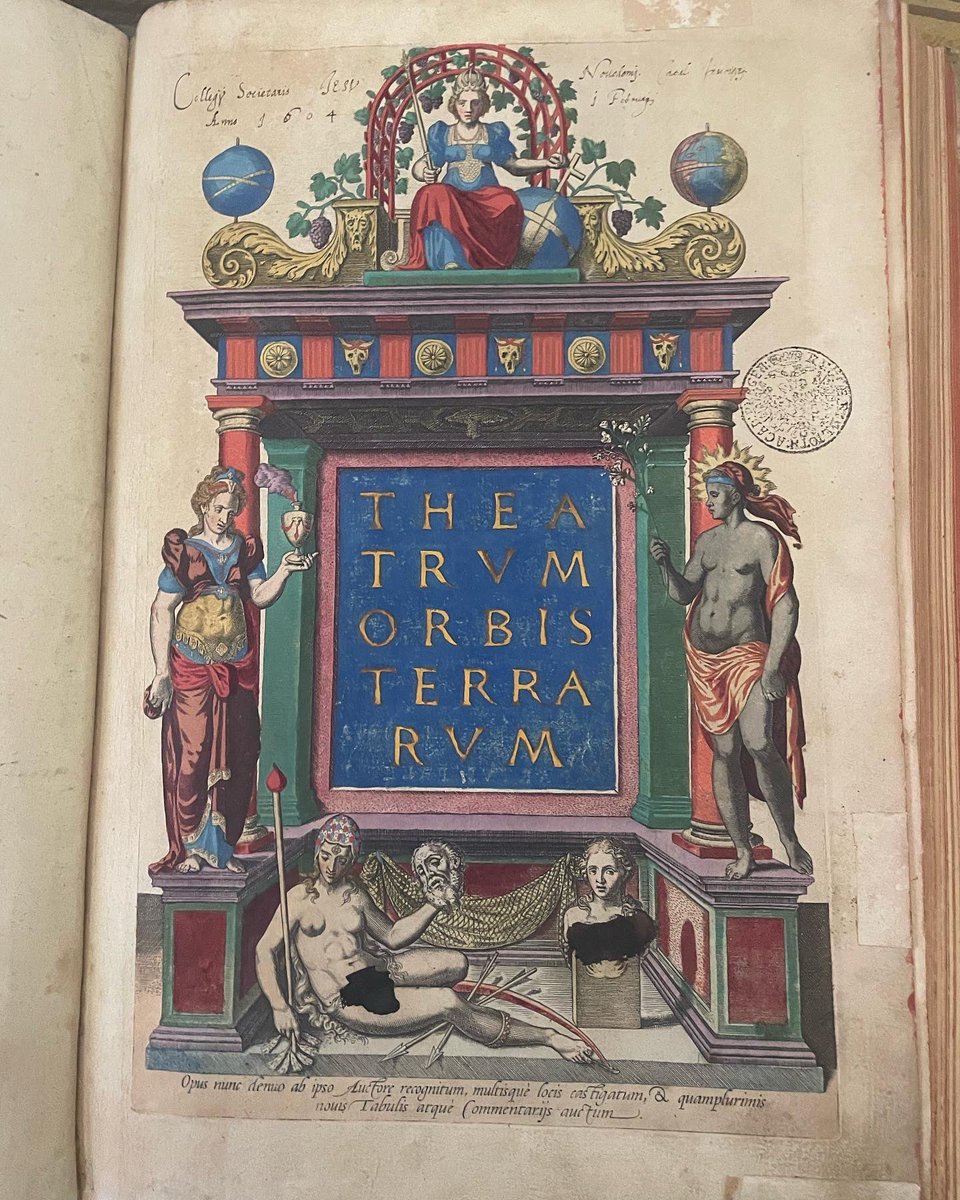 Collegij Societatis IESV
Anno 1604
THEA
TRVM
ORBIS
TERRA
RVM
Opus nunc denuo ab ipso Auctore recognitum, multisquè locis castigatum, & quamplurimis
nouis Tabulis atquè Commentarijs auctum.